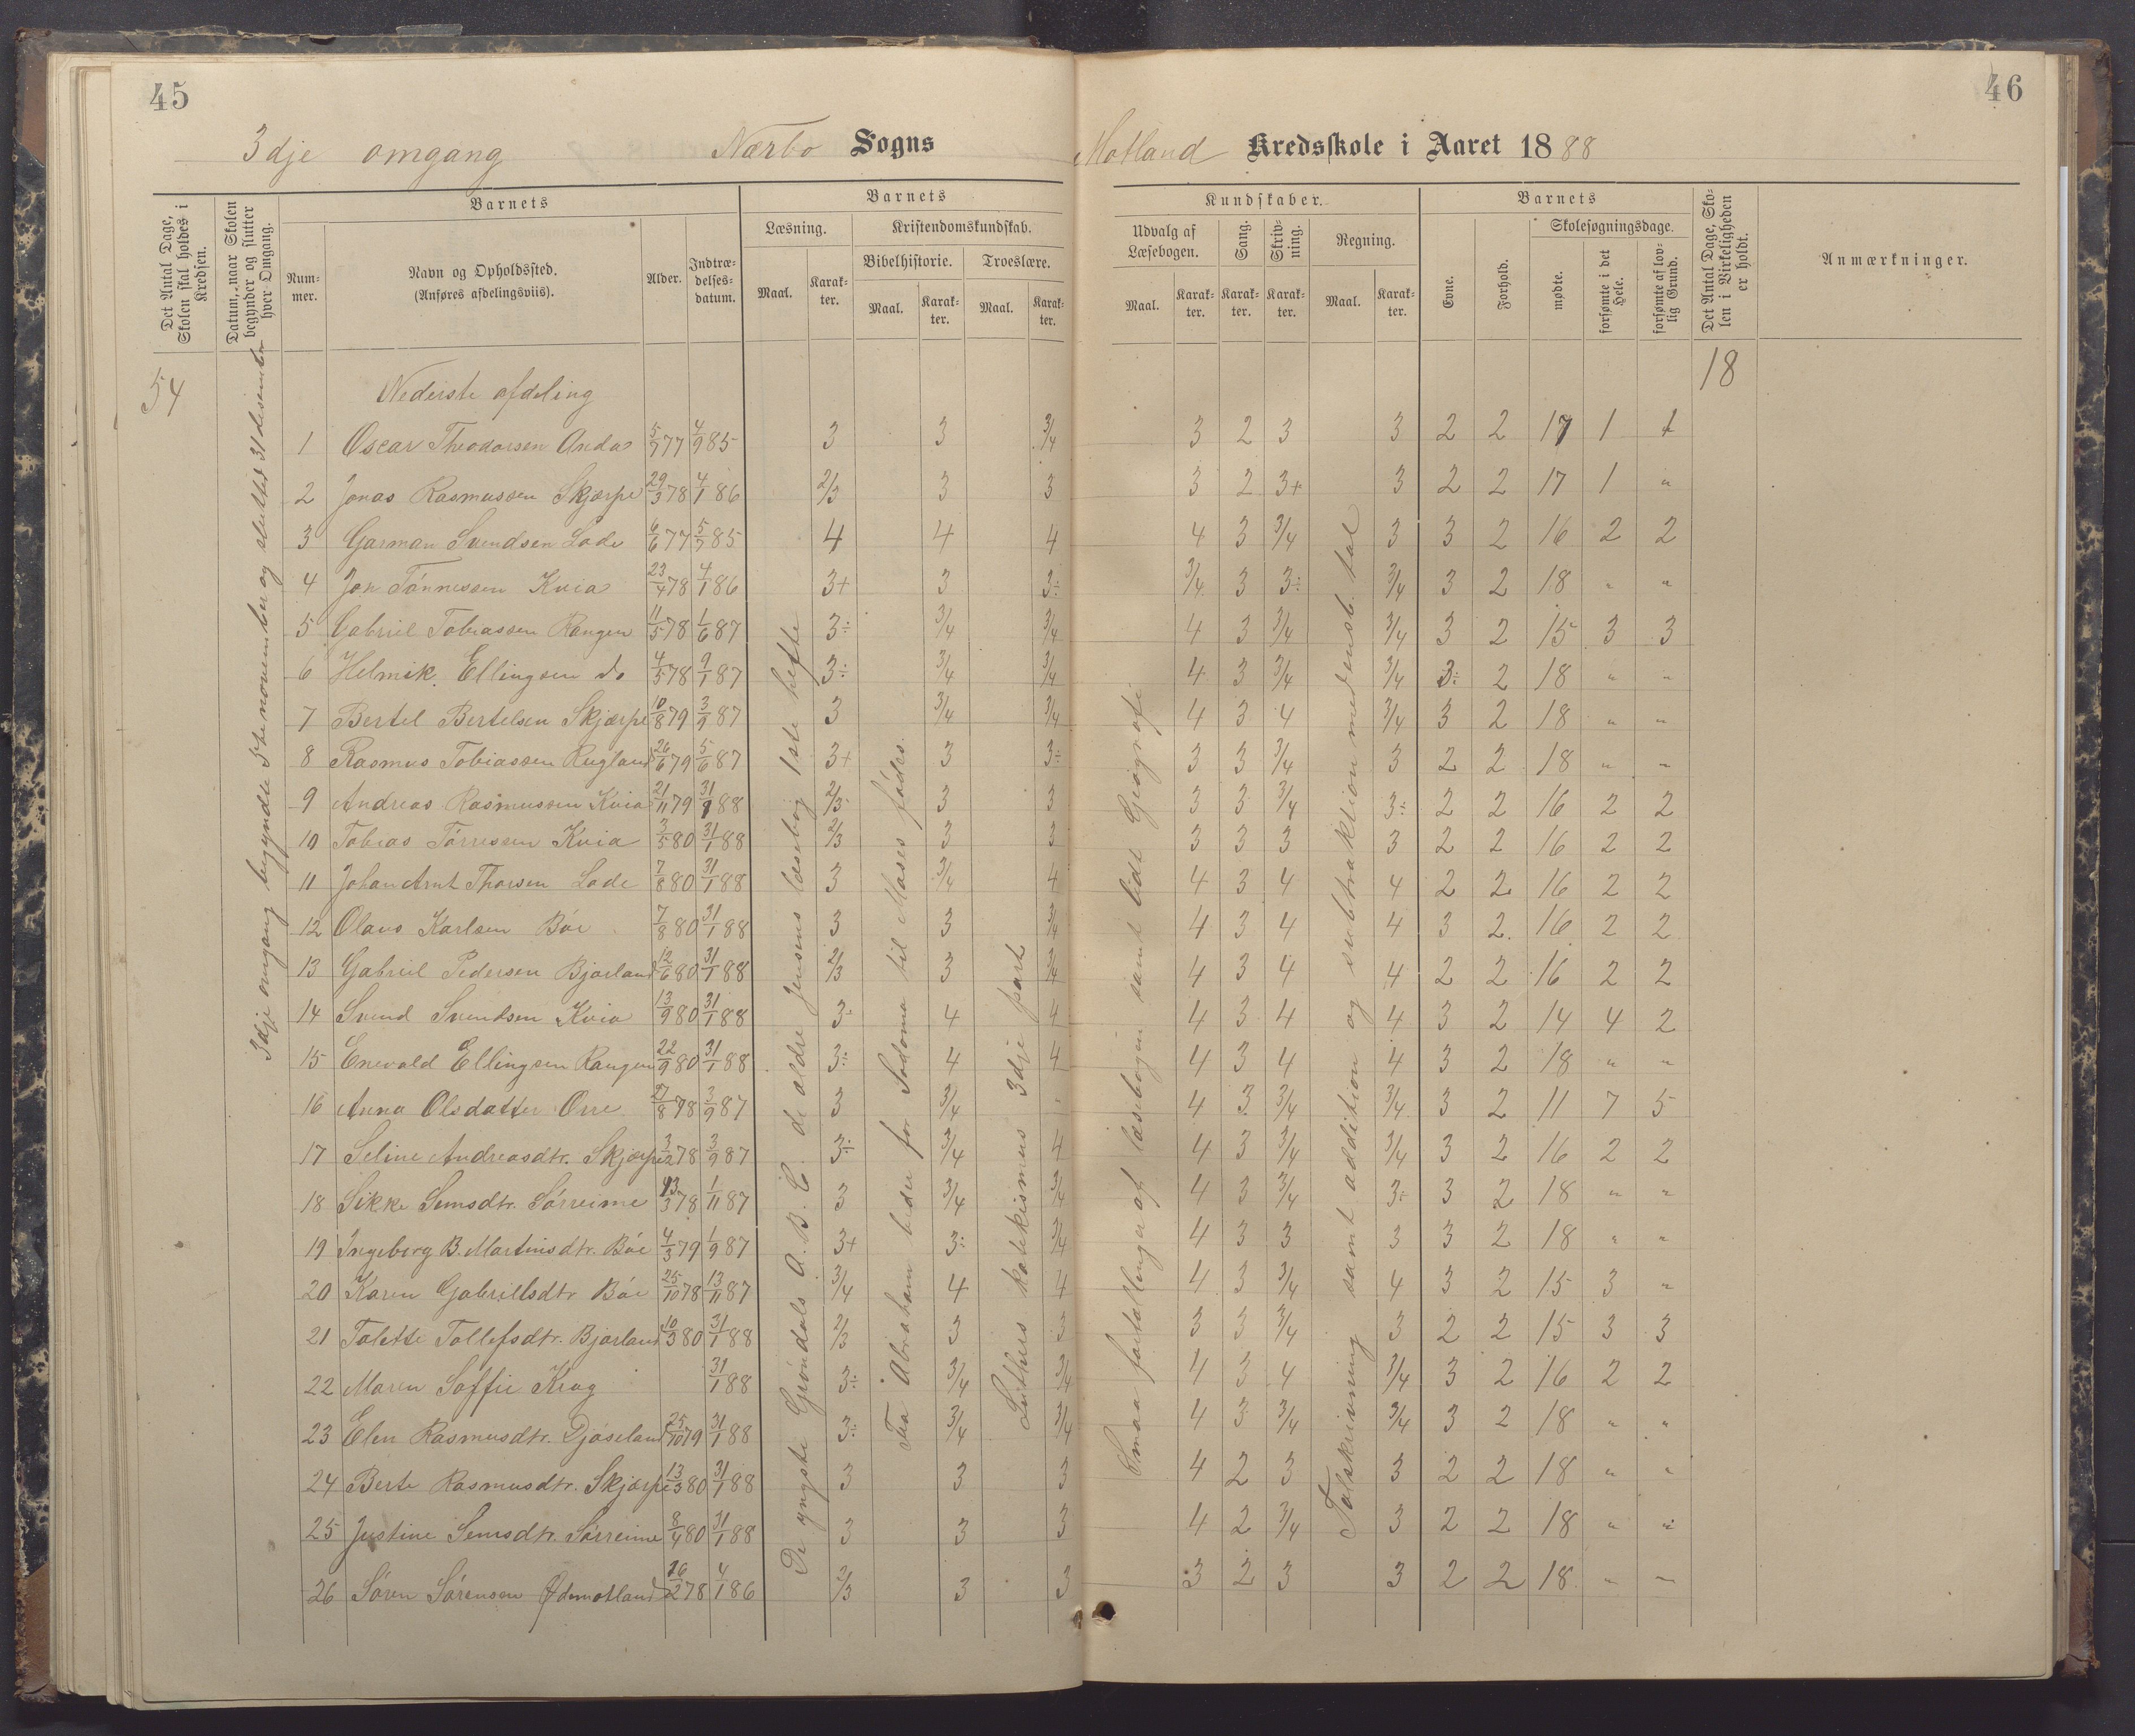 45
46
3dje omgang Nærbo Sogns
Motland Kredsskole i Aaret 1888
Det Antal Dage, Skolen skal holdes i Kredsen.
Datum, naar Skolen begynder og slutter hver Omgang.
Barnets
Num-mer.
Navn og Opholdssted. (Anføres afdelingsviis).
Alder.
Indtræ-delses-datum.
Barnets
Læsning.
Kristendomskundskab.
Bibelhistorie.
Troeslære.
Maal.
Karak-ter.
Maal.
Karak-ter.
Maal.
Karak-ter.
Kundskaber.
Udvalg af Læsebogen.
Sang.
Skriv-ning.
Regning.
Maal.
Karak-ter.
Karak-ter.
Karak-ter.
Maal.
Karak-ter.
Barnets
Evne.
Forhold.
Skolesøgningsdage.
mødte.
forsømte i det Hele.
forsømte af lov-lig Grund.
Det Antal Dage, Sko-len i Virkeligheden er holdt.
Anmærkninger.
54
18
3dje omgang begyndte 5te november og sluttet 31 desember
Nederste afdeling
1 Oscar Theodorsen Anda 5/7 77 4/9 85 3 3 3/4 3 2 3 3 2 2 17 1 1
2 Jonas Rasmussen Skjærpe 29/3 78 4/1 86 2/3 3 3 3 2 3+ 3 2 2 17 1 "
3 Garman Svendsen Lode 6/6 77 5/7 85 4 4 4 4 3 3/4 3 3 2 16 2 2
4 Jon Tönnessen Kvia 23/4 78 4/1 86 3+ 3 3÷ 3/4 3 3÷ 3/4 3 2 18 " "
5 Gabriel Tobiassen Rangen 11/5 78 1/6 87 3÷ 3/4 3/4 4 3 3/4 3/4 3 2 15 3 3
6 Helmik Ellingsen do 4/5 78 9/1 87 3÷ 3/4 3/4 4 3 3/4 3/4 3÷ 2 18 " "
7 Bertel Bertelsen Skjærpe 10/8 79 3/9 87 3 3/4 3/4 4 3 4 3/4 3 2 18 " "
8 Rasmus Tobiassen Rugland 26/6 79 5/6 87 3+ 3 3÷ 3 3 3/4 3 2 2 18 " "
9 Andreas Rasmussen Kvia 21/11 79 31/1 88 2/3 3 3 3 3 3/4 3÷ 2 2 16 2 2
10 Tobias Törresen Kvia 3/5 80 31/1 88 2/3 3 3 3 3 3 3 2 2 16 2 2
11 Johan Arnt Thorsen Lode 7/8 80 31/1 88 3 3/4 4 4 3 4 4 2 2 16 2 2
12 Olaus Karlsen Böe 7/8 80 31/1 88 3 3 3/4 4 3 4 4 3 2 16 2 2
13 Gabriel Pedersen Bjorland 12/6 80 31/1 88 2/3 3 3/4 4 3 4 4 2 2 16 2 2
14 Svend Svendsen Kvia 13/9 80 31/1 88 3÷ 4 4 4 3 4 4 3 2 14 4 2
15 Enevald Ellingsen Rangen 22/9 80 31/1 88 3÷ 4 4 4 3 4 4 3 2 18 " "
16 Anna Olsdatter Orre 27/8 78 3/9 87 3 3/4 " 4 3 3/4 3/4 3 2 11 7 5
17 Seline Andreasdtr. Skjærpe 3/2 78 3/9 87 3÷ 3/4 4 4 3 3/4 3/4 3 2 16 2 2
18 Sikke Semsdtr. Sörreime 13/3 78 1/11 87 3 3/4 3/4 4 3 3/4 3÷ 3 2 18 " "
19 Ingeborg B. Martinsdtr. Böe 4/3 79 1/9 87 3+ 3÷ 3/4 4 3 3 3 3 2 18 " "
20 Karen Gabrielsdtr Böe 25/10 78 13/11 87 3/4 4 4 4 3 3/4 4 3 2 15 3 "
21 Talette Tollefsdtr. Bjorland 10/3 80 31/1 88 2/3 3 3 3 3 3/4 3 2 2 15 3 3
22 Maren Soffie Krag 31/1 88 3÷ 3/4 3/4 4 3 4 3/4 3 2 16 2 2
23 Elen Rasmusdtr. Djöseland 25/10 79 31/1 88 3÷ 3/4 3/4 4 3 3/4 3/4 3 2 18 " "
24 Berte Rasmusdtr. Skjærpe 13/3 80 31/1 88 3 3 3 4 2 3 3 2 2 18 " "
25 Justine Semsdtr. Sörreime 8/4 80 31/1 88 3 3 3 4 2 3/4 3 2 2 18 " "
26 Sören Sörensen Ödemotland 16/2 78 4/1 86 2/3 3 3 3 2 3 3 2 2 18 " "
De yngste Gröndals A. B. C. de ældre Jensens læsebog 1ste hefte
Fra Abraham beder for Sodoma til Moses födes.
Luthers katekismus 3dje part
Smaa fortællinger af læsebogen samt lidt Geografi
Talskrivning samt addition og subtraktion med ensb. tal